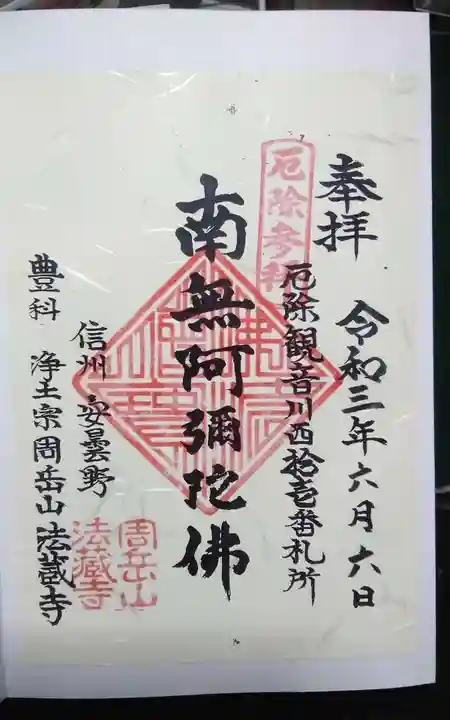 奉拝
令和三年六月六日
厄除参拝
厄除観音川西拾壱番札所
南無阿彌陀佛
信州安曇野
豊科 浄土宗周岳山法蔵寺
周岳山
法蔵寺